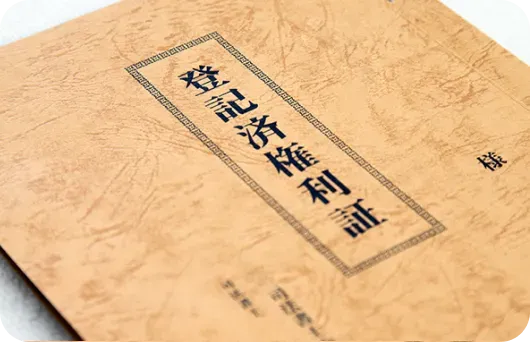 様
登記済権利証